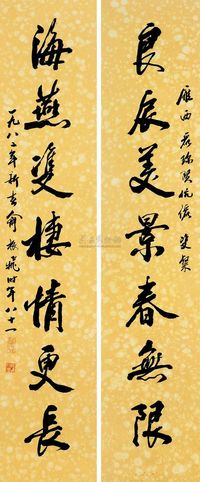 雁西
良辰美景春無限
海燕雙棲情更長
一九八二年新春俞振飛時年八十一